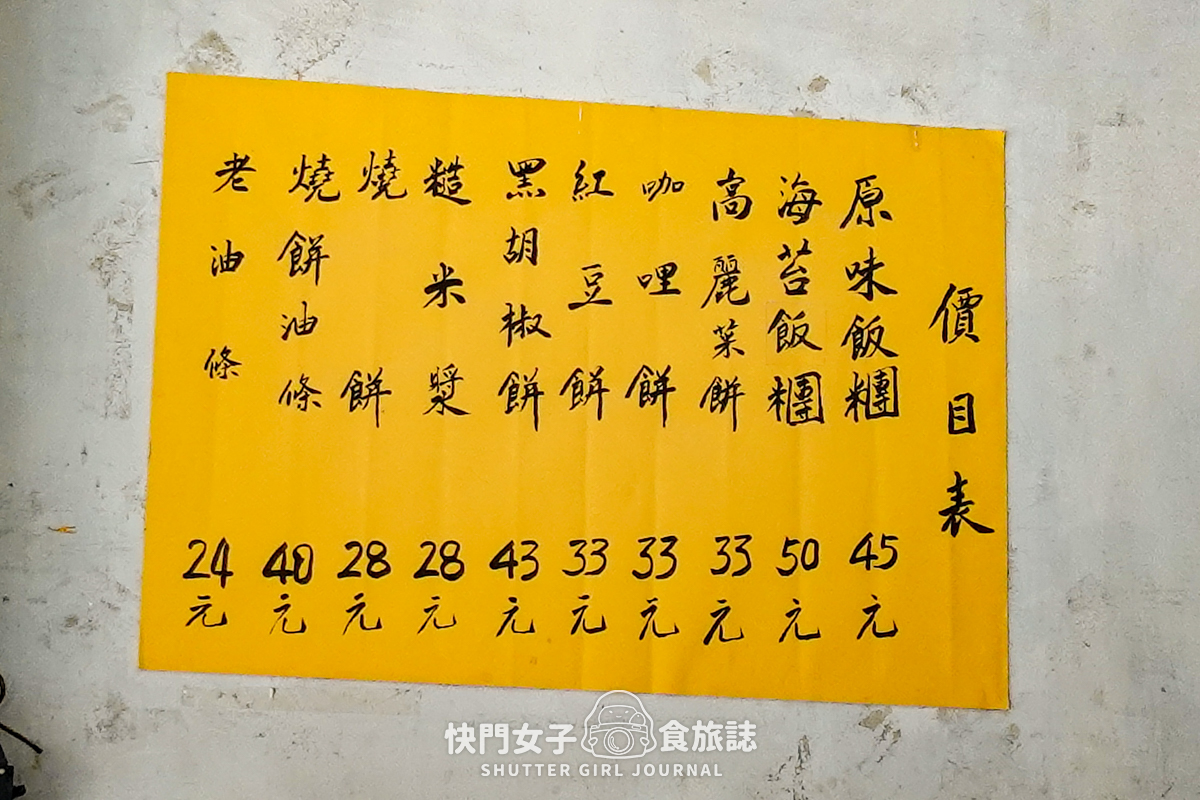 價目表
原味飯糰 45元
海苔飯糰 50元
高麗菜餅 33元
咖哩餅 33元
紅豆餅 33元
黑胡椒餅 43元
糙米漿 28元
燒餅 28元
燒餅油條 40元
老油條 24元
快門女子食旅誌
SHUTTER GIRL JOURNAL